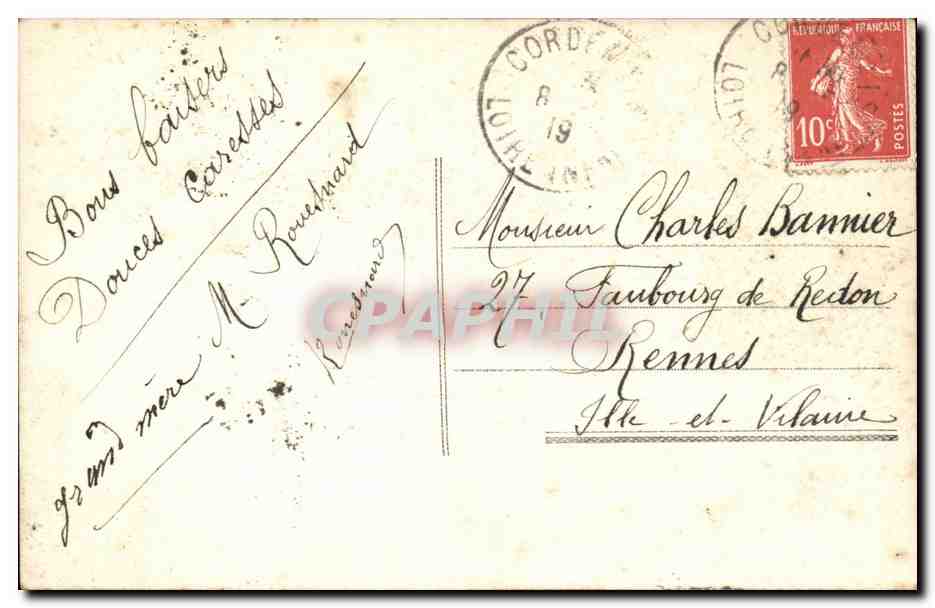 Bons baisers
Douces Caresses
grand mère M. Rouesnard
Rouesnard
CORDEMAIS
8
19
LOIRE INF
REPUBLIQUE FRANÇAISE
10c
POSTES
Monsieur Charles Bannier
27, Faubourg de Redon
Rennes
Ille-et-Vilaine
CPAPHIL